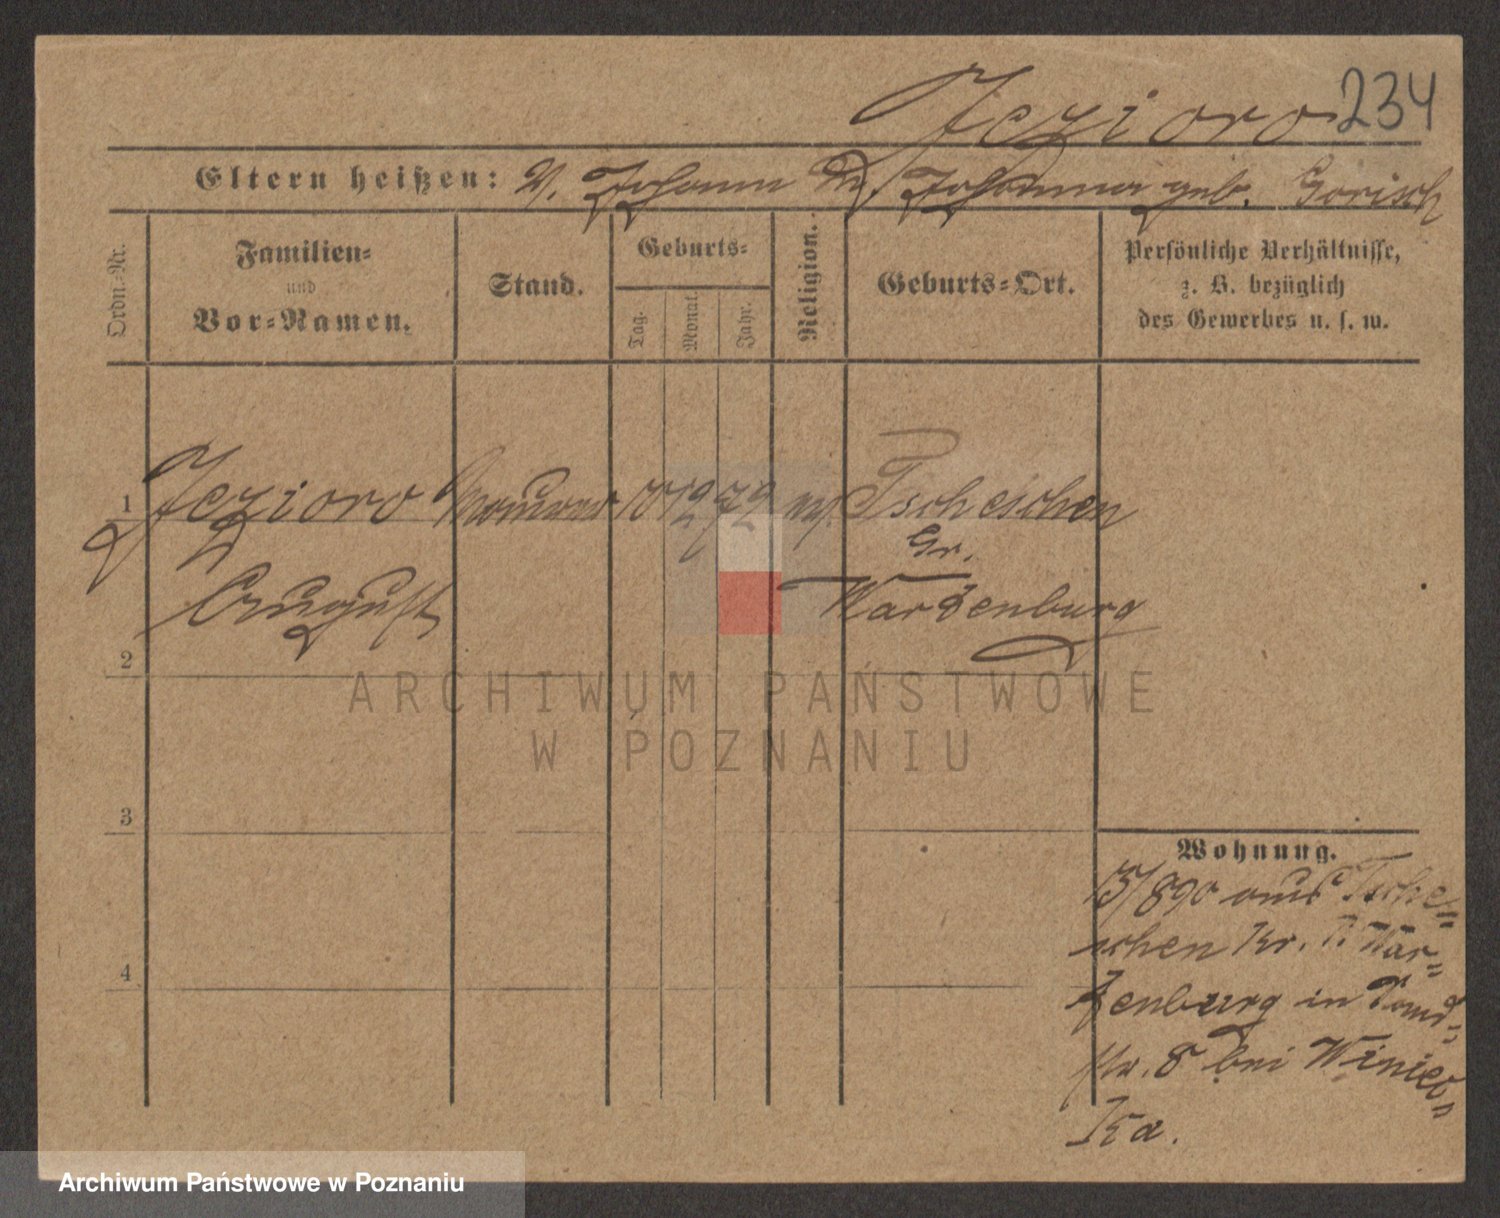 Jezioro 234
Eltern heißen: V. Johann M. Johanna geb. Gorisch
Ordn.-Nr.
Familien-
und
Vor-Namen.
Stand.
Geburts-
Tag.
Monat.
Jahr.
Religion.
Geburts-Ort.
Persönliche Verhältnisse,
z. B. bezüglich
des Gewerbes u. s. w.
1 Jezioro 10 12 72 Tscheschen
Gr.
August Wartenburg
2
3
4
Wohnung.
15/890 aus Tsche-
schen Kr. P. War-
tenburg in
str. 8 bei Winiec-
ka.
ARCHIWUM PAŃSTWOWE
W POZNANIU
Archiwum Państwowe w Poznaniu